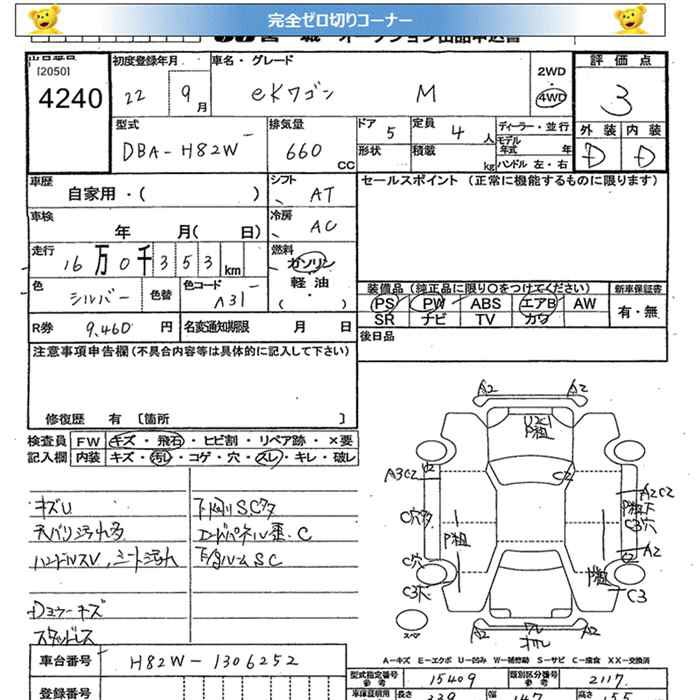 完全ゼロ切りコーナー
宮城 オークション出品申込書
出品番号 初度登録年月 車名・グレード 2WD 評価点
[2050]
4240 22 9月 eKワゴン M 4WD 3
型式 排気量 ドア 定員 ディーラー・並行 外装 内装
DBA-H82W 660 CC 5 4人 モデル年式 年 D D
形状 積載 kg ハンドル 左・右
車歴 シフト セールスポイント (正常に機能するものに限ります)
自家用・( ) AT
車検 冷房
年 月( 日) AC
走行 燃料
16万0千353km ガソリン
軽油
( ・ )
色 色替 色コード 装備品 (純正品に限り○をつけてください) 新車保証書
シルバー A31 PS PW ABS エアB AW 有・無
SR ナビ TV カワ
R券 9,460 円 名変通知期限 月 日 後日品
注意事項申告欄 (不具合内容等は具体的に記入して下さい)
修復歴 有 [箇所 ]
検査員 FW キズ・飛石・ヒビ割・リペア跡・×要
記入欄 内装 キズ・汚れ・コゲ・穴・スレ・キレ・破レ
A2 A2
P粗
C2
A3C2 U2 A2C2
C穴多 P粗 P粗下
C3穴
A2
C穴 P粗
C3下 C3
スペア A2 A2
キズU 下廻りSC多
天バリ汚れ多 エンドパネル歪.C
ハンドルスレ、シート汚れ SC
Dミラーキズ
スタッドレス
A…キズ E…エクボ U…凹み W…補修跡 S…サビ C…腐食 XX…交換済
車台番号 H82W-1306252
型式指定番号 参考 15409 類別区分番号 参考 2117
登録番号 車庫証明用 長さ 339 幅 147 高さ 155